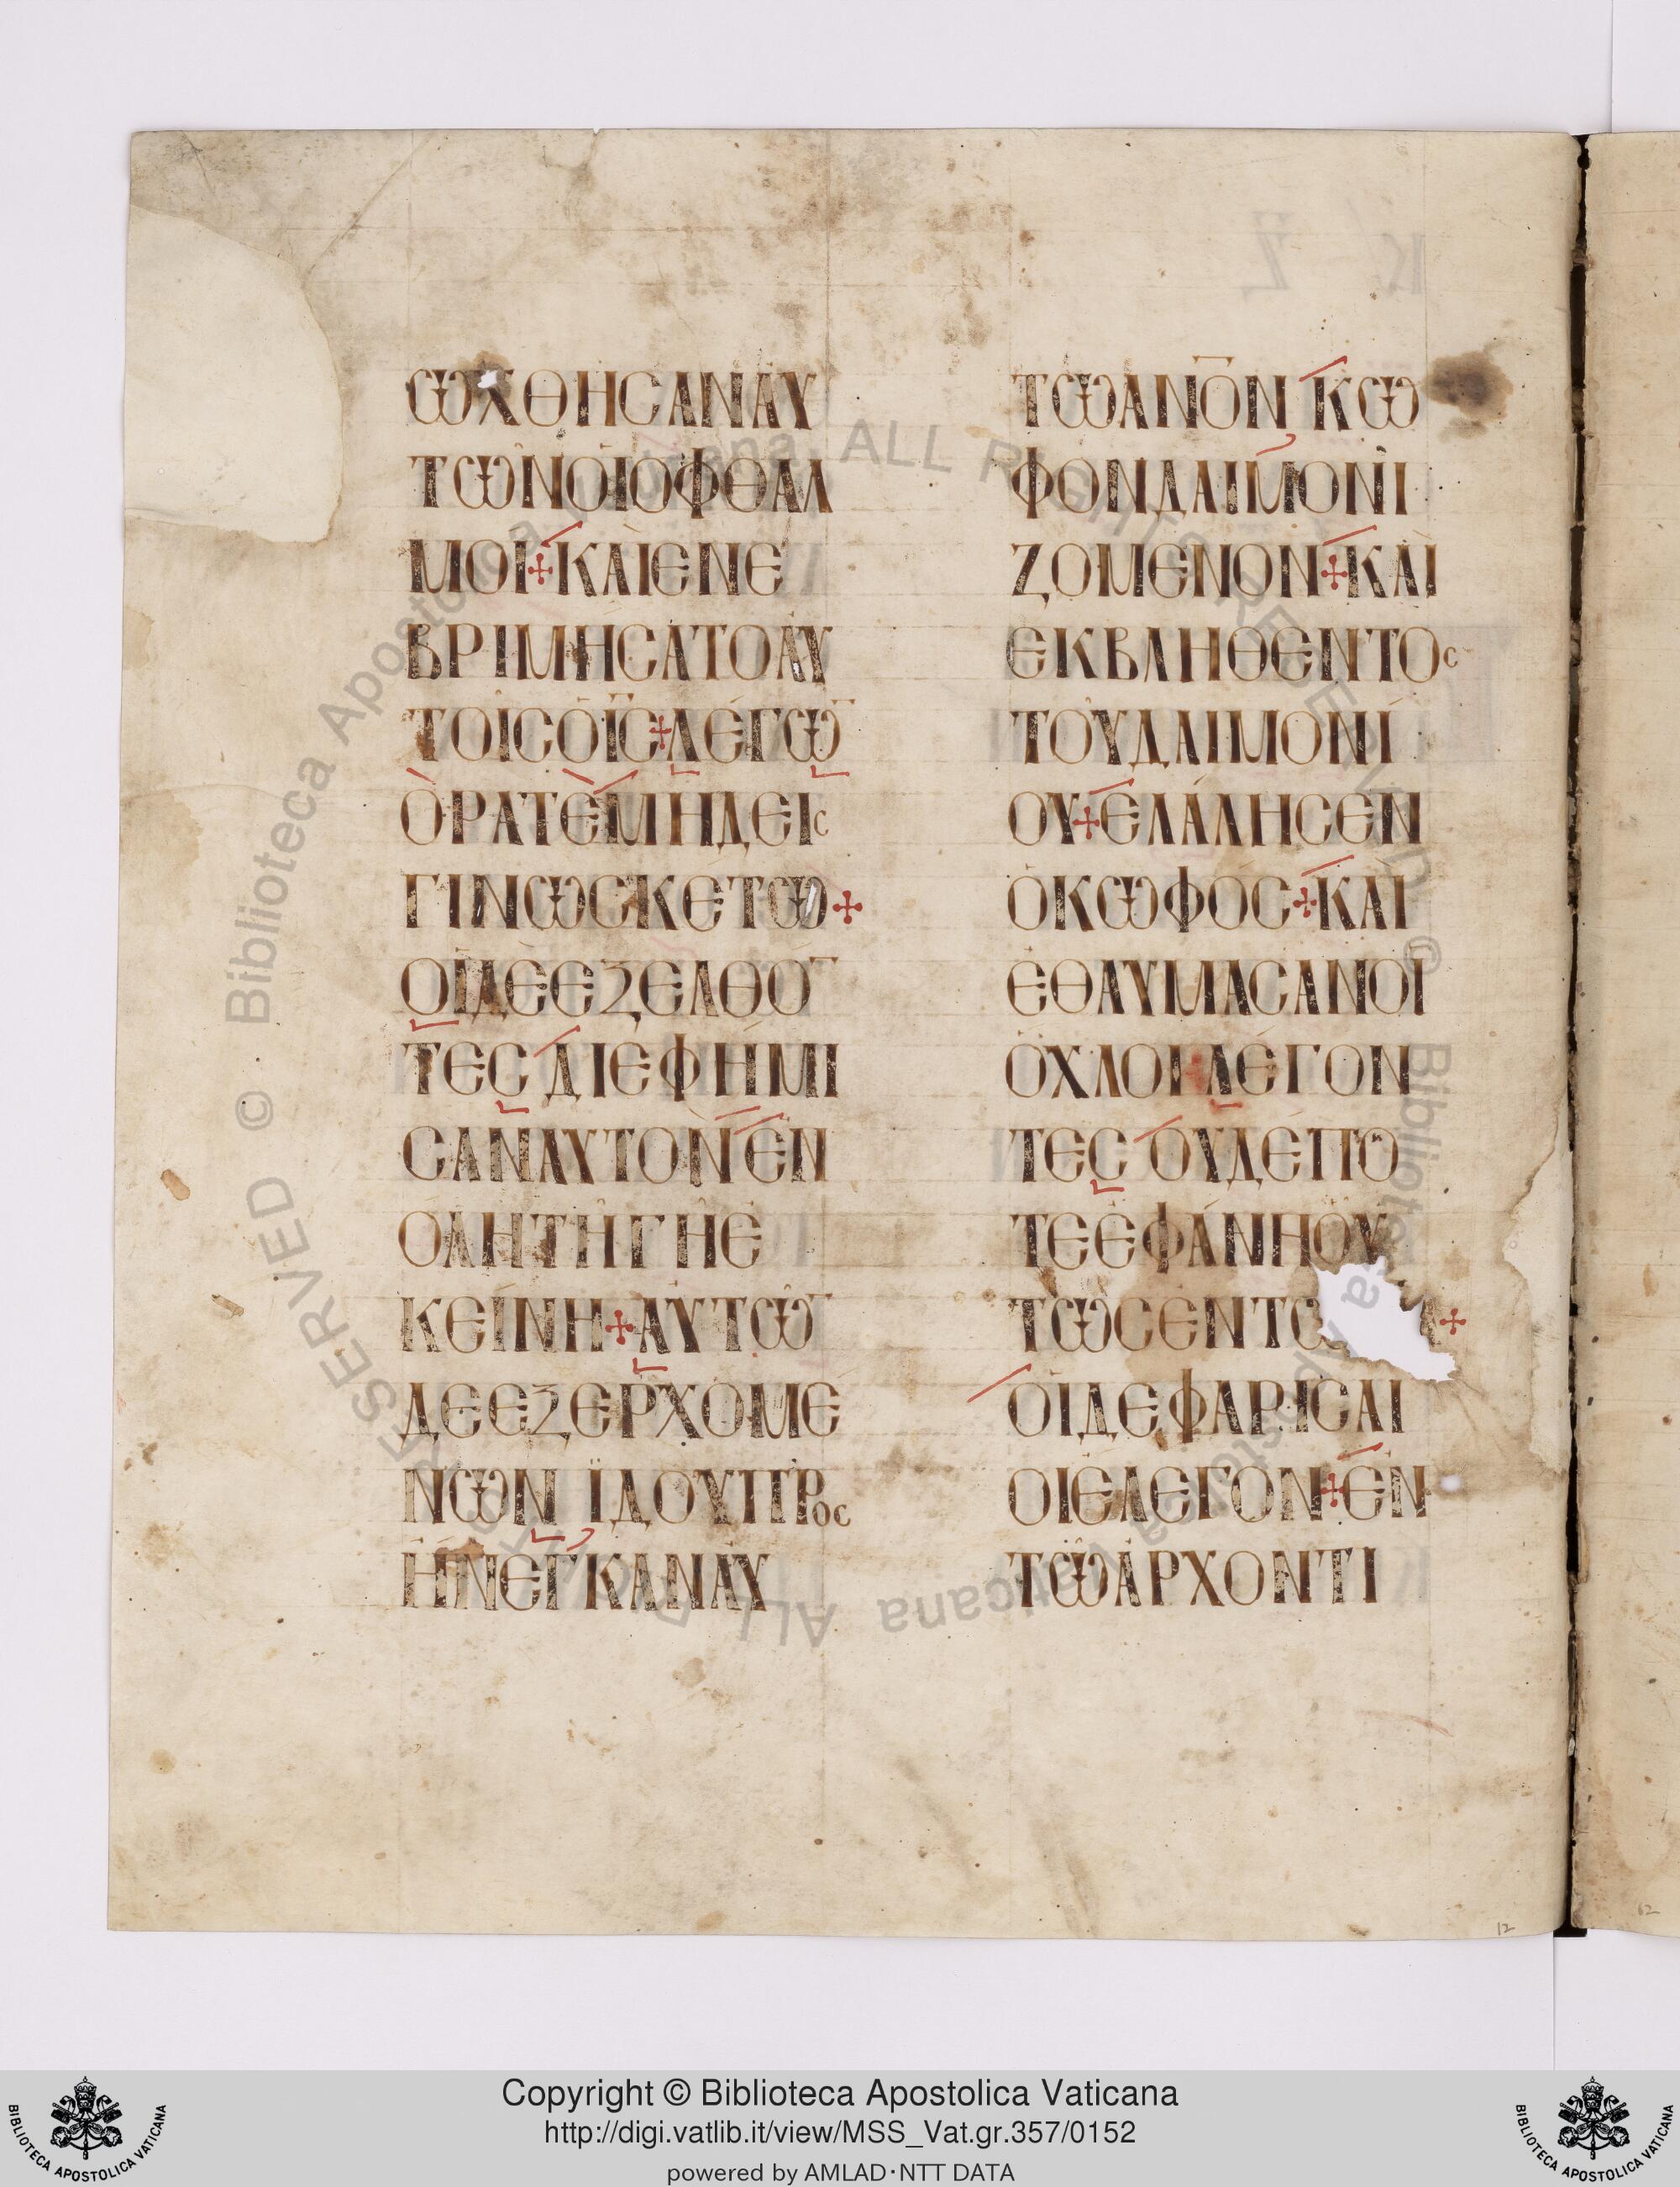 ѠΧΘΗϹΑΝΑΥ
ΤѠΝΟΙΟΦΘΑΛ
ΜΟΙ+ΚΑΙΕΝΕ
ΒΡΙΜΗϹΑΤΟΑΥ
ΤΟΙϹΟΙ̅Ϲ̅+ΛΕΓѠ̅
ΟΡΑΤΕΜΗΔΕΙϹ
ΓΙΝѠϹΚΕΤѠ+
ΟΙΔΕΕΞΕΛΘΟ̅
ΤΕϹΔΙΕΦΗΜΙ
ϹΑΝΑΥΤΟΝΕΝ
ΟΛΗΤΗΓΗΕ
ΚΕΙΝΗ+ΑΥΤѠ̅
ΔΕΕΞΕΡΧΟΜΕ
ΝѠΝ ΪΔΟΥΠΡΟϹ
ΗΝΕΓΚΑΝΑΥ
ΤѠΑΝΟ̅Ν ΚѠ
ΦΟΝΔΑΙΜΟΝΙ
ΖΟΜΕΝΟΝ+ΚΑΙ
ΕΚΒΛΗΘΕΝΤΟϹ
ΤΟΥΔΑΙΜΟΝΙ
ΟΥ+ΕΛΑΛΗϹΕΝ
ΟΚѠΦΟϹ+ΚΑΙ
ΕΘΑΥΜΑϹΑΝΟΙ
ΟΧΛΟΙ+ΛΕΓΟΝ
ΤΕϹ ΟΥΔΕΠΟ
ΤΕΕΦΑΝΗΟΥ
ΤѠϹΕΝΤѠ +
ΟΙΔΕΦΑΡΙϹΑΙ
ΟΙΕΛΕΓΟΝ+ΕΝ
ΤѠΑΡΧΟΝΤΙ
12
62
Copyright © Biblioteca Apostolica Vaticana
http://digi.vatlib.it/view/MSS_Vat.gr.357/0152
powered by AMLAD·NTT DATA
BIBLIOTECA APOSTOLICA VATICANA
BIBLIOTECA APOSTOLICA VATICANA